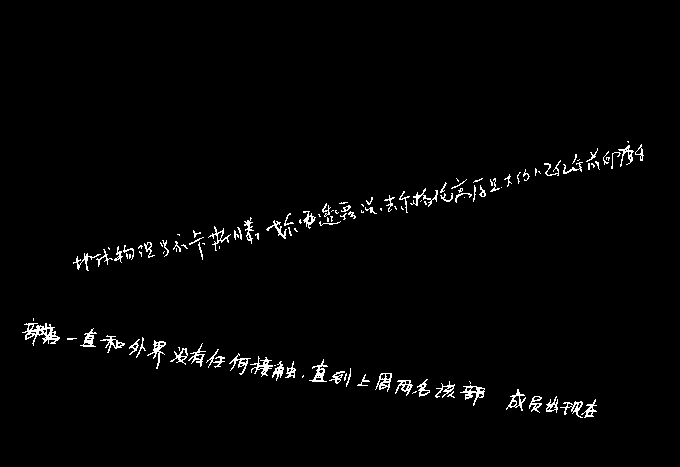 地球物理学家卡斯滕,戈尔雷透露说,凯尔格伦高原是大约1.2亿年前印度和
部落一直和外界没有任何接触.直到上周两名该部 成员出现在